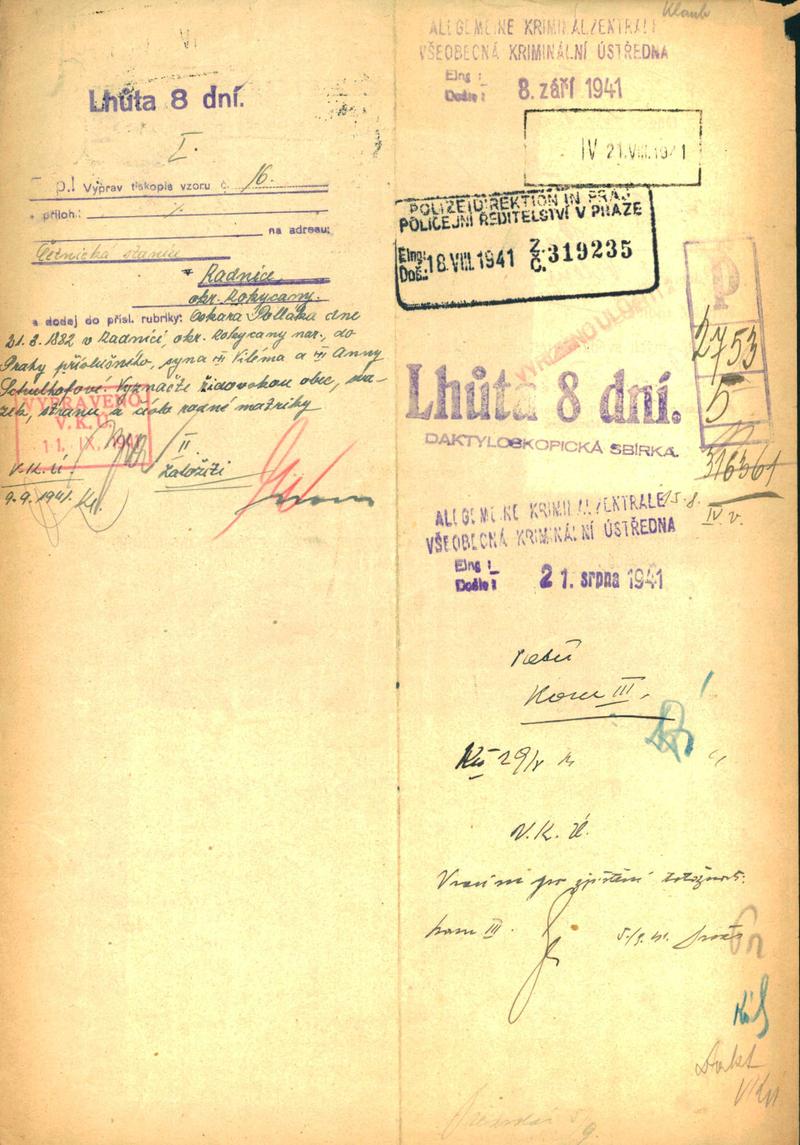 Lhůta 8 dní.
I.
p.! Výprav tiskopis vzoru č. 16.
příloh:
na adresu:
Četnická stanice
Radnice
okr. Rokycany.
a dodej do přísl. rubriky: Oskara Pollaka dne
21. 8. 1882 v Radnici, okr. Rokycany nar., do
Prahy příslušného, syna Viléma a Anny
Schulhofove. Vyznačte židovskou obec, sva-
zek, stranu a číslo rodné matriky
VYPRAVENO
V. K. Ú.
11. IX. 1941
II
V. K. Ú.
založiti
9. 9. 1941.
Klaub
ALLGEMEINE KRIMINALZENTRALE
VŠEOBECNÁ KRIMINÁLNÍ ÚSTŘEDNA
Eing.:
Došlo:
8. září 1941
IV 21. VIII. 1941
POLIZEIDIREKTION IN PRAG
POLICEJNÍ ŘEDITELSTVÍ V PRAZE
Eing.:
Doš.: 18. VIII. 1941 Z. Č. 319235
P
2753
5
316361
Lhůta 8 dní.
DAKTYLOSKOPICKÁ SBÍRKA.
15. 8.
IV. v.
ALLGEMEINE KRIMINALZENTRALE
VŠEOBECNÁ KRIMINÁLNÍ ÚSTŘEDNA
Eing.:
Došlo:
21. srpna 1941
Kom III.
V. K. Ú.
Vrací se pro zjištění totožnosti.
kom III.
5./9. 41.
Dakt
VKÚ